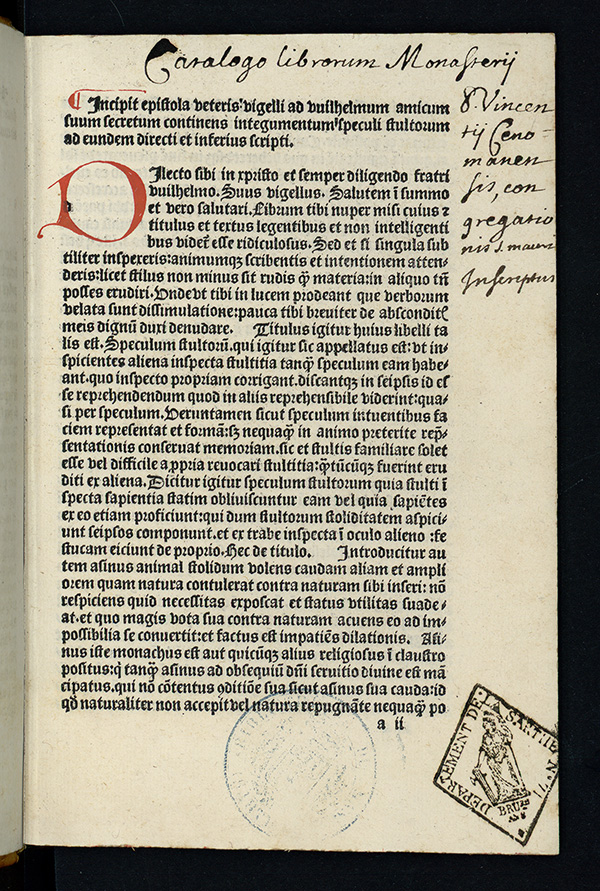 Catalogo librorum Monasterij
S. Vincen
tij Ceno-
manen
sis, con
gregatio
nis S. mauri
Inscriptus
¶ Incipit epistola veteris vigelli ad vuilhelmum amicum
suum secretum continens integumentum speculi stultorum
ad eundem directi et inferius scripti.
DIlecto sibi in xpristo et semper diligendo fratri
vuilhelmo. Suus vigellus. Salutem ī summo
et vero salutari. Librum tibi nuper misi cuius ⁊
titulus et tertus legentibus et non intelligenti
bus viderẽ esse ridiculosus. Sed et si singula sub
tiliter inspexeris: animumqȝ scribentis et intentionem atten⸗
deris: licet stilus non minus sit rudis q̃ materia: in aliquo tñ
posses erudiri. Unde vt tibi in lucem prodeant que verborum
velata sunt dissimulatione: pauca tibi breuiter de absconditẽ
meis dignũ duxi denudare. Titulus igitur huius libelli ta
lis est. Speculum stultorũ. qui igitur sic appellatus est: vt in⸗
spicientes aliena inspecta stultitia tanq̃ speculum eam habe⸗
ant. quo inspecto propriam corrigant. discantqȝ in seipsis id es
se reprehendendum quod in aliis reprehensibile viderint: qua⸗
si per speculum. Veruntamen sicut speculum intuentibus fa
ciem representat et formã: sȝ nequaq̃ in animo preterite rep̃⸗
sentationis conseruat memoriam. sic et stultis familiare solet
esse vel difficile a ꝓpria reuocari stultitia: q̃tũcũqȝ fuerint eru
diti ex aliena. Dicitur igitur speculum stultorum quia stulti ī
specta sapientia statim obliuiscuntur eam vel quia sapiẽtes
ex eo etiam proficiunt: qui dum stultorum stoliditatem aspici⸗
unt seipsos componunt. et ex trabe inspecta ī oculo alieno : fe
stucam eiciunt de proprio. Hec de titulo. Introducitur au
tem asinus animal stolidum volens caudam aliam et ampli
orem quam natura contulerat contra naturam sibi inseri: nõ
respiciens quid necessitas exposcat et status vtilitas suade⸗
at. et quo magis vota sua contra naturam acuens eo ad im⸗
possibilia se conuertit: et factus est impatiẽs dilationis. Asi⸗
nus iste monachus est aut quicũqȝ alius religiosus ī claustro
positus: q̃ tanq̃ asinus ad obsequiũ dñi seruitio diuine est mã
cipatus. qui nõ cõtentus ꝯditiõe sua sicut asinus sua cauda: id
qd̃ naturaliter non accepit vel natura repugnãte nequaq̃ po
a ii
DEPARTEMENT DE LA SARTHE Nº 71